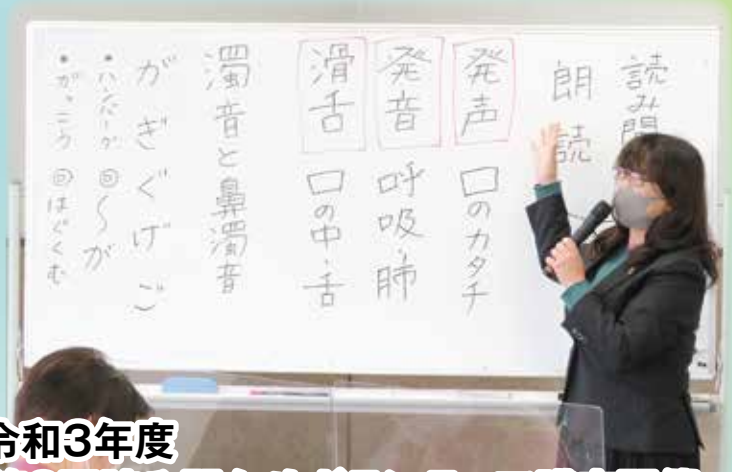 読み聞
朗読
発声 口のカタチ
発音 呼吸・肺
滑舌 口の中・舌
濁音と鼻濁音
がぎぐげご
・ハンバーグ ◎〜が
・がっこう ◎はぐくむ
令和3年度